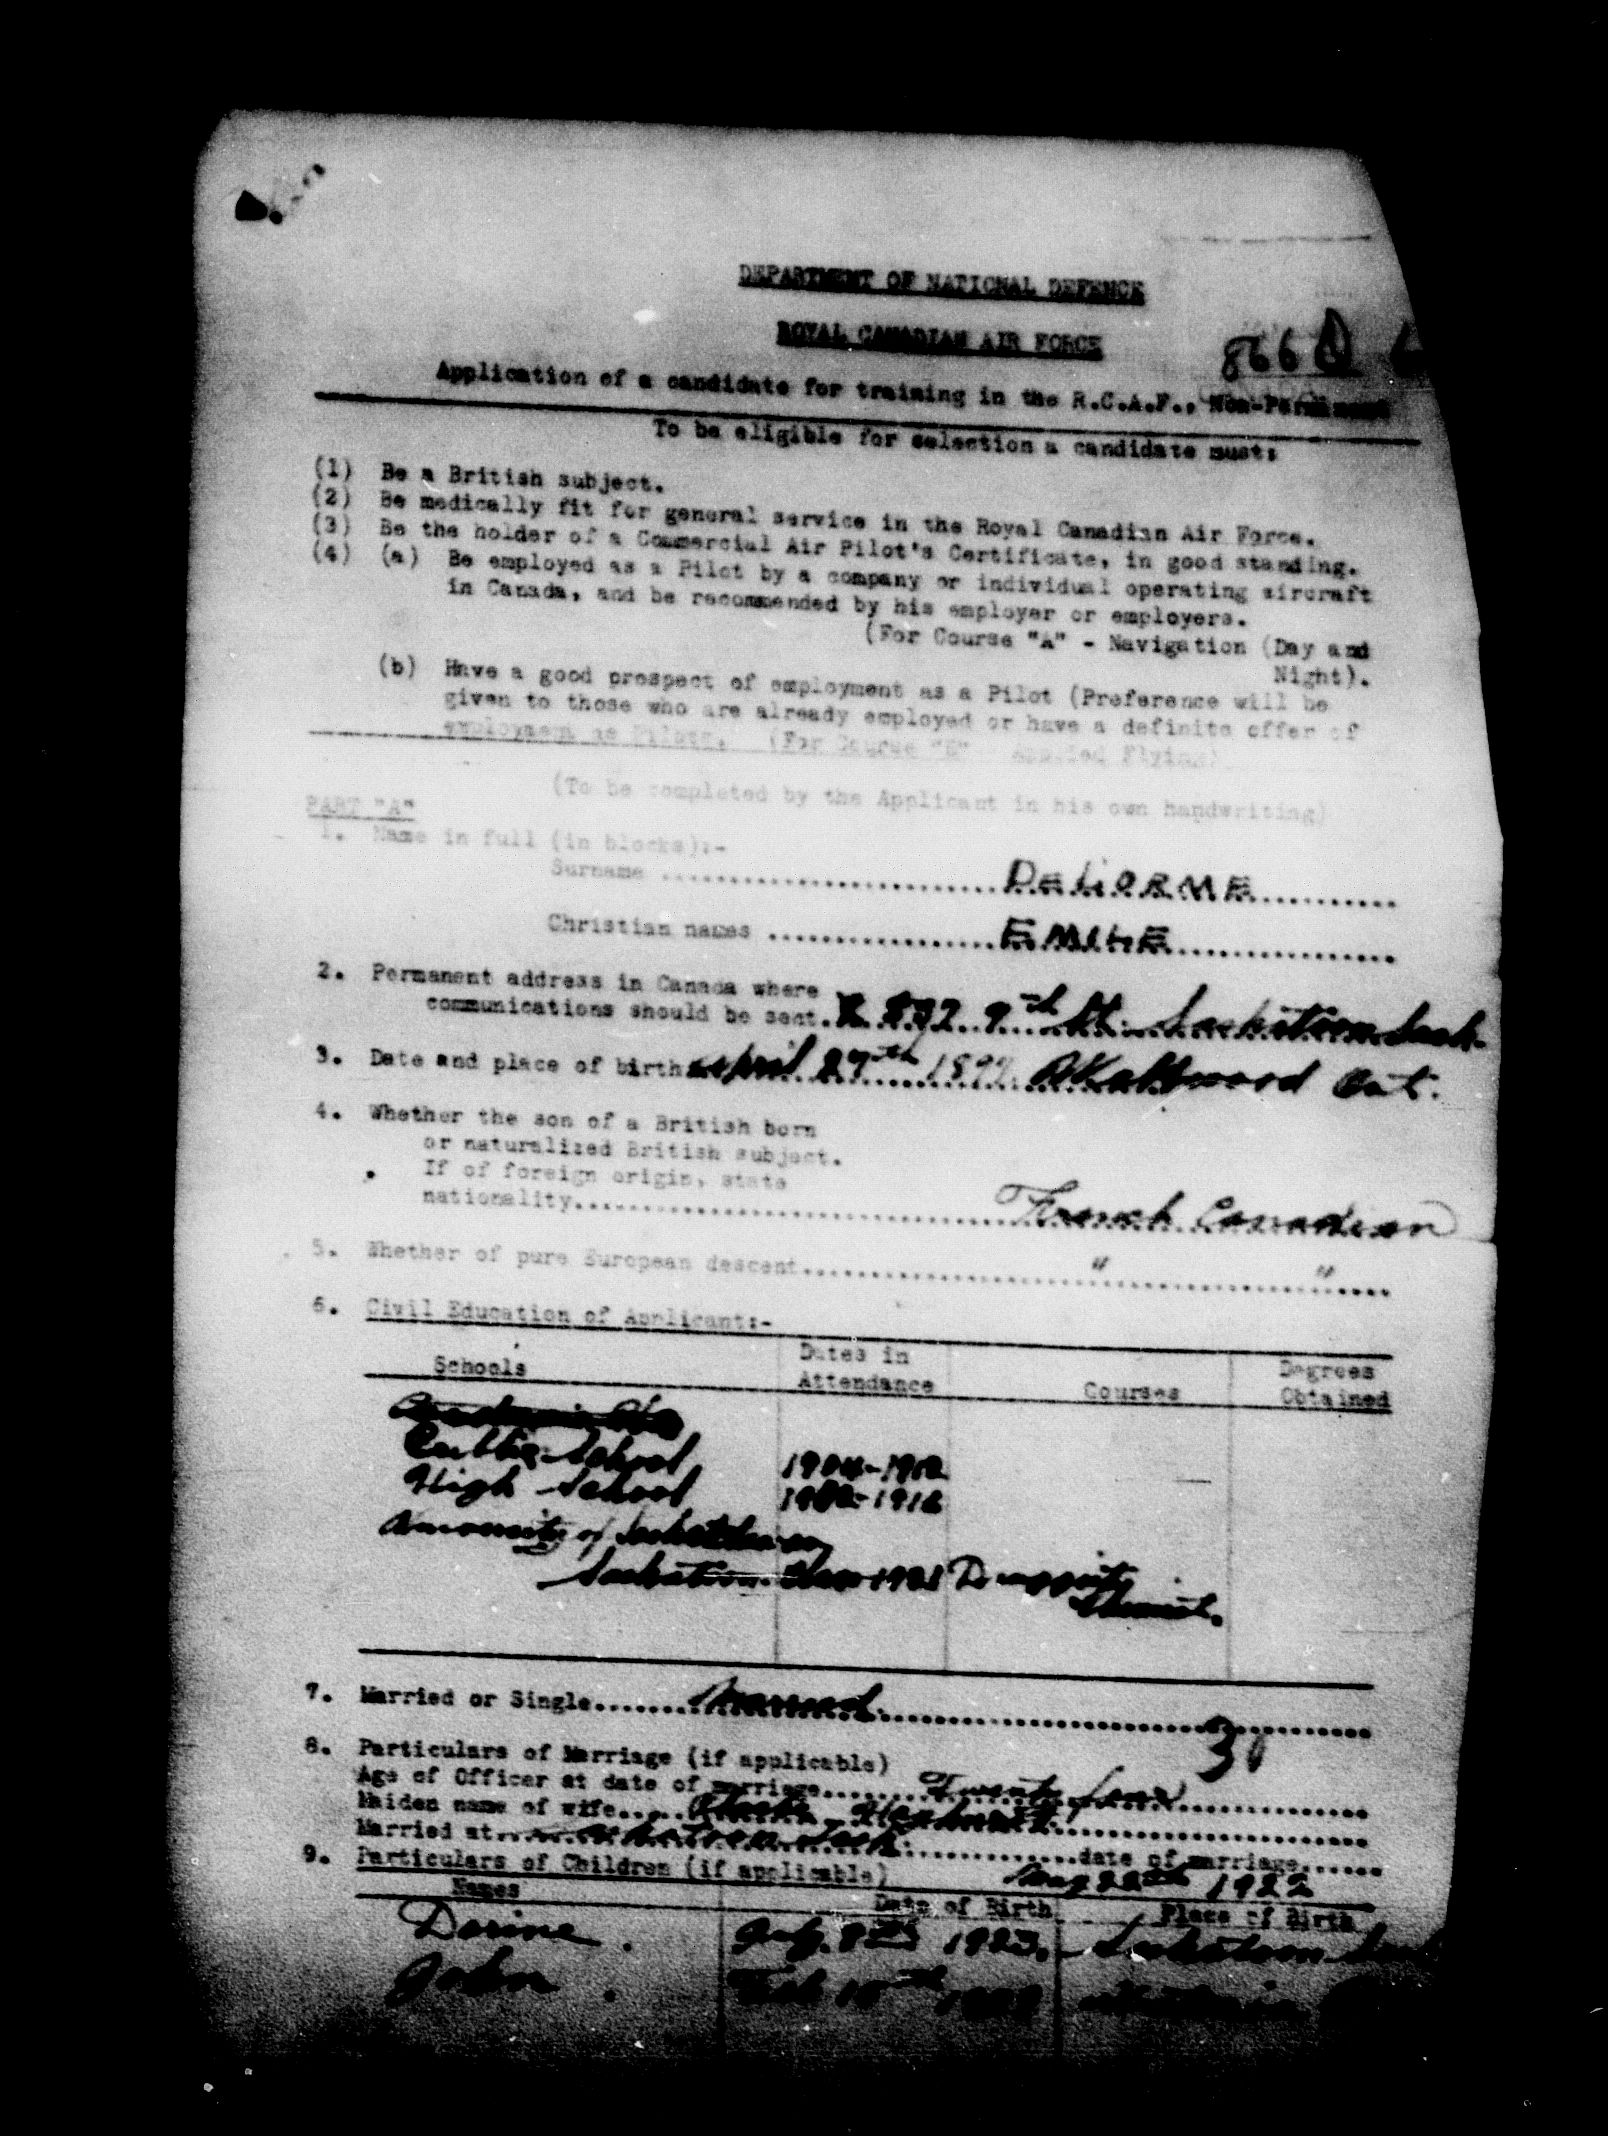 DEPARTMENT OF NATIONAL DEFENCE
ROYAL CANADIAN AIR FORCE
866
Application of a candidate for training in the R.C.A.F., Non-Permanent
To be eligible for selection a candidate must:
(1) Be a British subject.
(2) Be medically fit for general service in the Royal Canadian Air Force.
(3) Be the holder of a Commercial Air Pilot's Certificate, in good standing.
(4) (a) Be employed as a Pilot by a company or individual operating aircraft
in Canada, and be recommended by his employer or employers.
(For Course "A" - Navigation (Day and
Night).
(b) Have a good prospect of employment as a Pilot (Preference will be
given to those who are already employed or have a definite offer of
employment as Pilots. (For Course "B" Applied Flying)
(To be completed by the Applicant in his own handwriting)
PART "A"
1. Name in full (in blocks):-
Surname DELORME
Christian names EMILE
2. Permanent address in Canada where
communications should be sent. 832 9th St. Saskatoon Sask.
3. Date and place of birth April 27th 1899 Ont.
4. Whether the son of a British born
or naturalized British subject.
If of foreign origin, state
nationality French Canadian
5. Whether of pure European descent " "
6. Civil Education of Applicant:-
Schools Dates in Attendance Courses Degrees Obtained
Public School 1904-1912
High School 1912-1916
University of Saskatchewan
Saskatoon 1921 Druggist
Chemist.
7. Married or Single Married
30
8. Particulars of Marriage (if applicable)
Age of Officer at date of marriage Twenty
Maiden name of wife
Married at Saskatoon Sask. date of marriage
May 22nd 1922
9. Particulars of Children (if applicable)
Names Date of Birth Place of Birth
Dorine July 8th 1923. Saskatoon Sask
John Feb